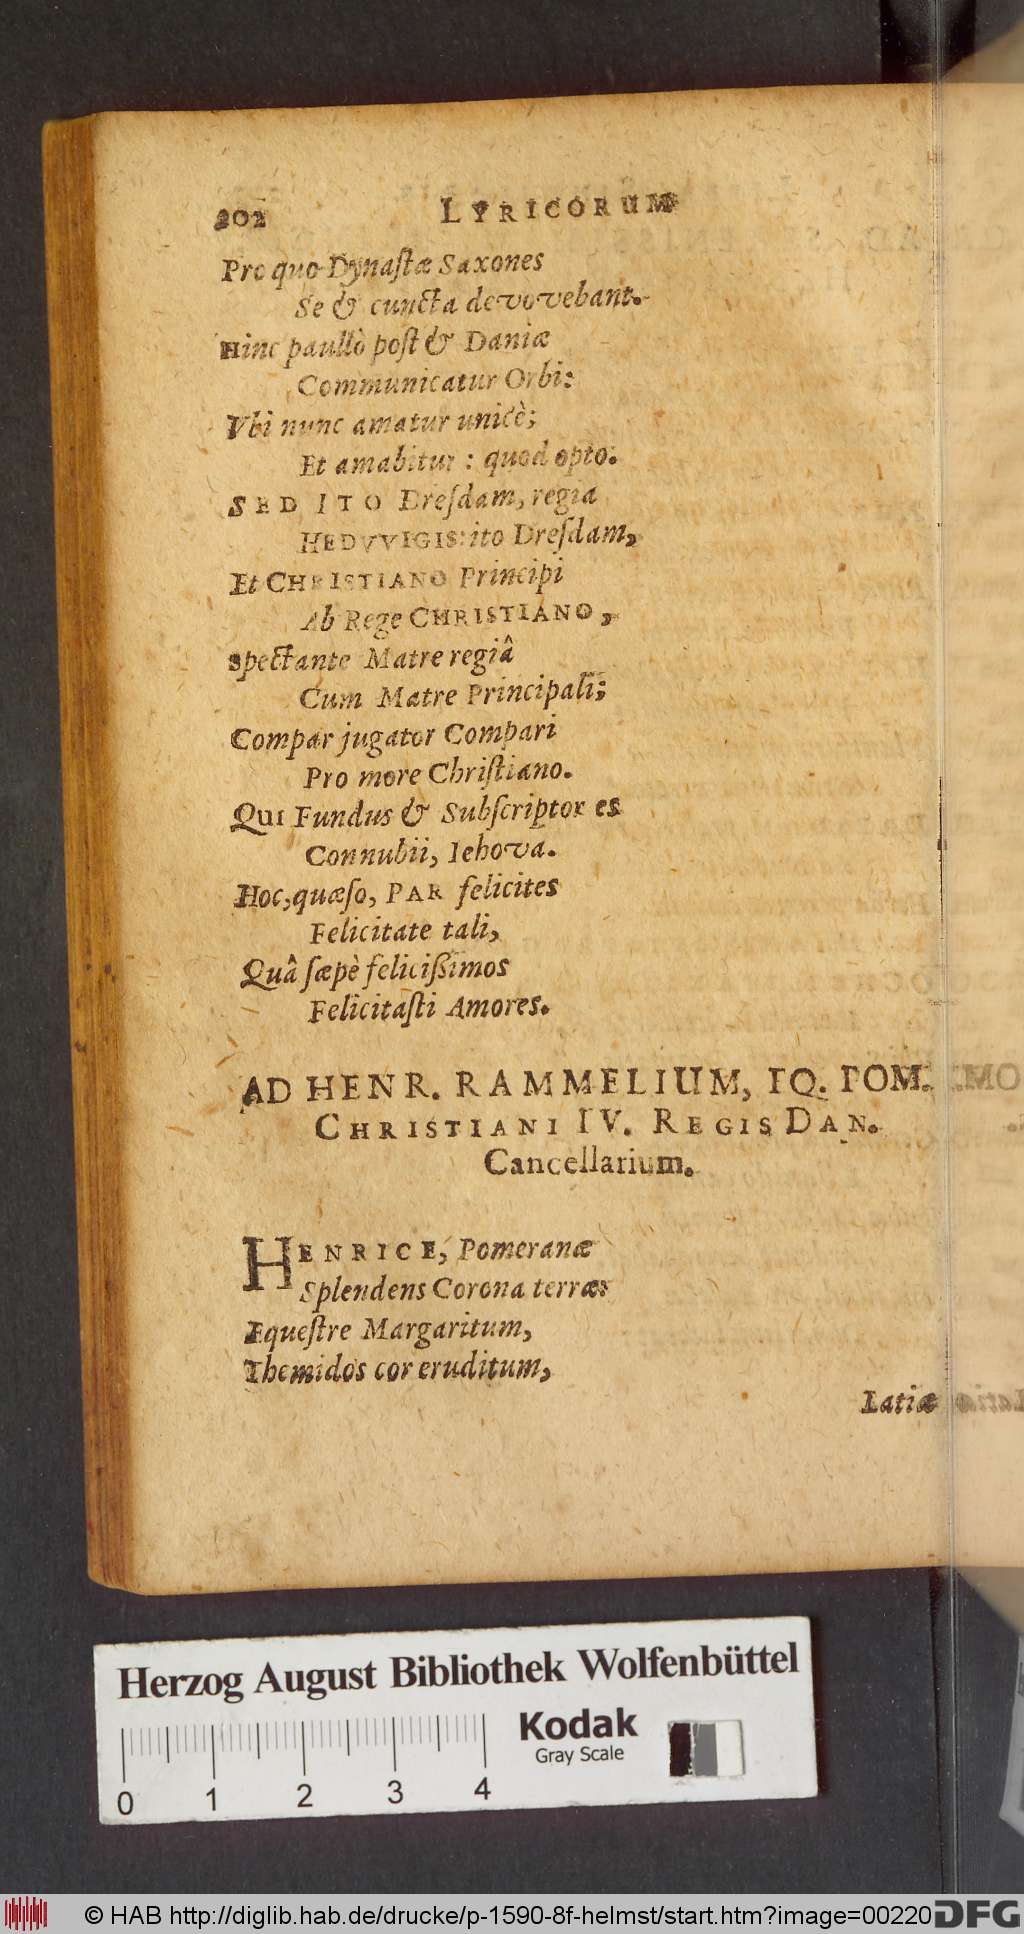 202 LYRICORUM
Pro quo Dynaſtæ Saxones
Se & cuncta devovebant.
Hinc paullò poſt & Daniæ
Communicatur Orbi:
Vbi nunc amatur unicè;
Et amabitur: quod opto.
SED ITO Dreſdam, regia
HEDVVIGIS: ito Dreſdam,
Et CHRISTIANO Principi
Ab Rege CHRISTIANO,
Spectante Matre regiâ
Cum Matre Principali;
Compar jugator Compari
Pro more Chriſtiano.
QUI Fundus & Subſcriptor es
Connubii, Iehova.
Hoc, quæſo, PAR felicites
Felicitate tali,
Quâ ſæpè feliciſſimos
Felicitaſti Amores.
AD HENR. RAMMELIUM, EQ. POM.
CHRISTIANI IV. REGIS DAN.
Cancellarium.
HENRICE, Pomeranæ
Splendens Corona terræ:
Equeſtre Margaritum,
Themidos cor eruditum,
Latiæ
Herzog August Bibliothek Wolfenbüttel
Kodak
Gray Scale
0 1 2 3 4
© HAB http://diglib.hab.de/drucke/p-1590-8f-helmst/start.htm?image=00220 DFG